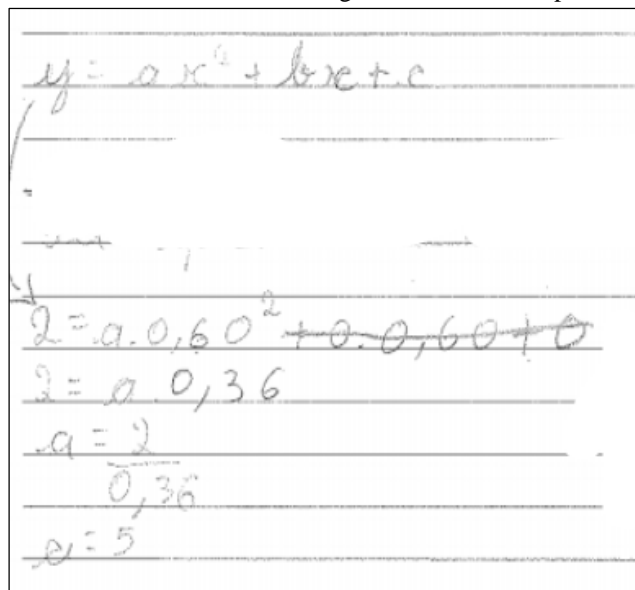 y = ax² + bx + c
2 = a.0,60² + 0.0,60 + 0
2 = a 0,36
a = 2
0,36
a = 5